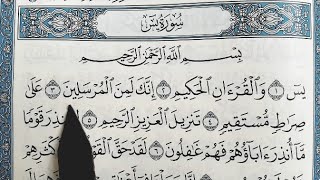 سُورَةُ يسٓ
بِسْمِ ٱللَّهِ ٱلرَّحْمَٰنِ ٱلرَّحِيمِ
يسٓ ١ وَٱلْقُرْءَانِ ٱلْحَكِيمِ ٢ إِنَّكَ لَمِنَ ٱلْمُرْسَلِينَ ٣ عَلَىٰ
صِرَٰطٍ مُّسْتَقِيمٍ ٤ تَنزِيلَ ٱلْعَزِيزِ ٱلرَّحِيمِ ٥ لِتُنذِرَ قَوْمًا
مَّآ أُنذِرَ ءَابَآؤُهُمْ فَهُمْ غَٰفِلُونَ ٦ لَقَدْ حَقَّ ٱلْقَوْلُ